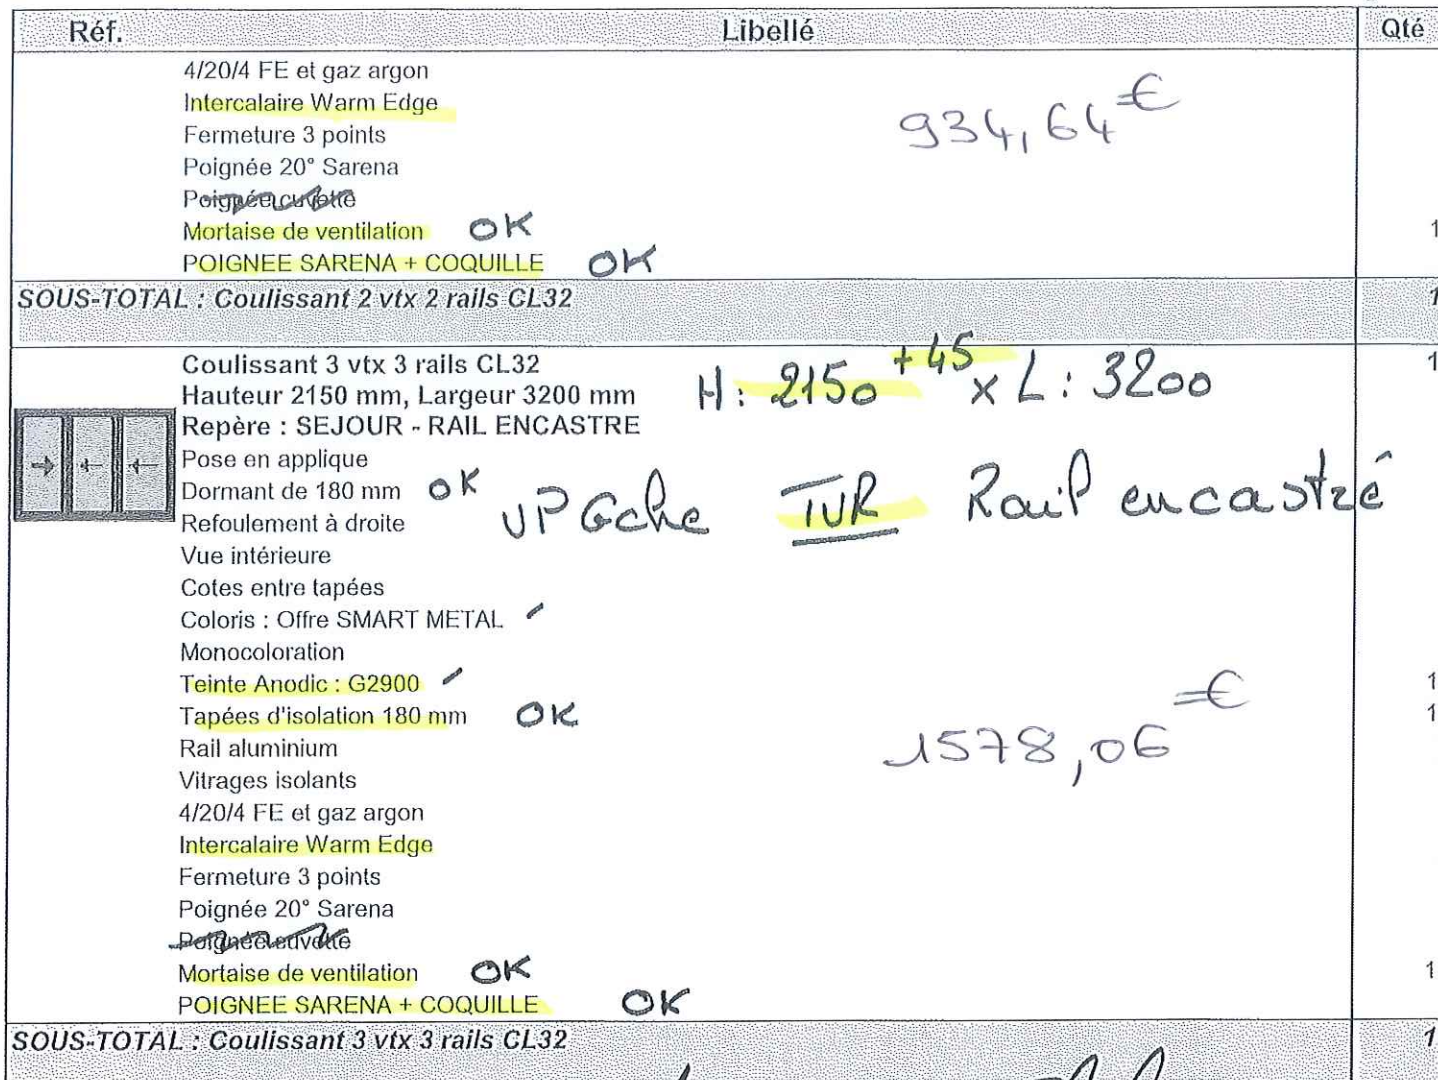 Réf. Libellé Qté
4/20/4 FE et gaz argon
Intercalaire Warm Edge
934,64 €
Fermeture 3 points
Poignée 20° Sarena
Poignée cuvette
Mortaise de ventilation OK 1
POIGNEE SARENA + COQUILLE OK
SOUS-TOTAL : Coulissant 2 vtx 2 rails CL32 1
Coulissant 3 vtx 3 rails CL32 1
Hauteur 2150 mm, Largeur 3200 mm H: 2150 +45 x L: 3200
Repère : SEJOUR - RAIL ENCASTRE
Pose en applique
Dormant de 180 mm OK
VP Gche TVR Rail encastré
Refoulement à droite
Vue intérieure
Cotes entre tapées
Coloris : Offre SMART METAL
Monocoloration
Teinte Anodic : G2900 1
Tapées d'isolation 180 mm OK 1
Rail aluminium
1578,06 €
Vitrages isolants
4/20/4 FE et gaz argon
Intercalaire Warm Edge
Fermeture 3 points
Poignée 20° Sarena
Poignée cuvette
Mortaise de ventilation OK 1
POIGNEE SARENA + COQUILLE OK
SOUS-TOTAL : Coulissant 3 vtx 3 rails CL32 1